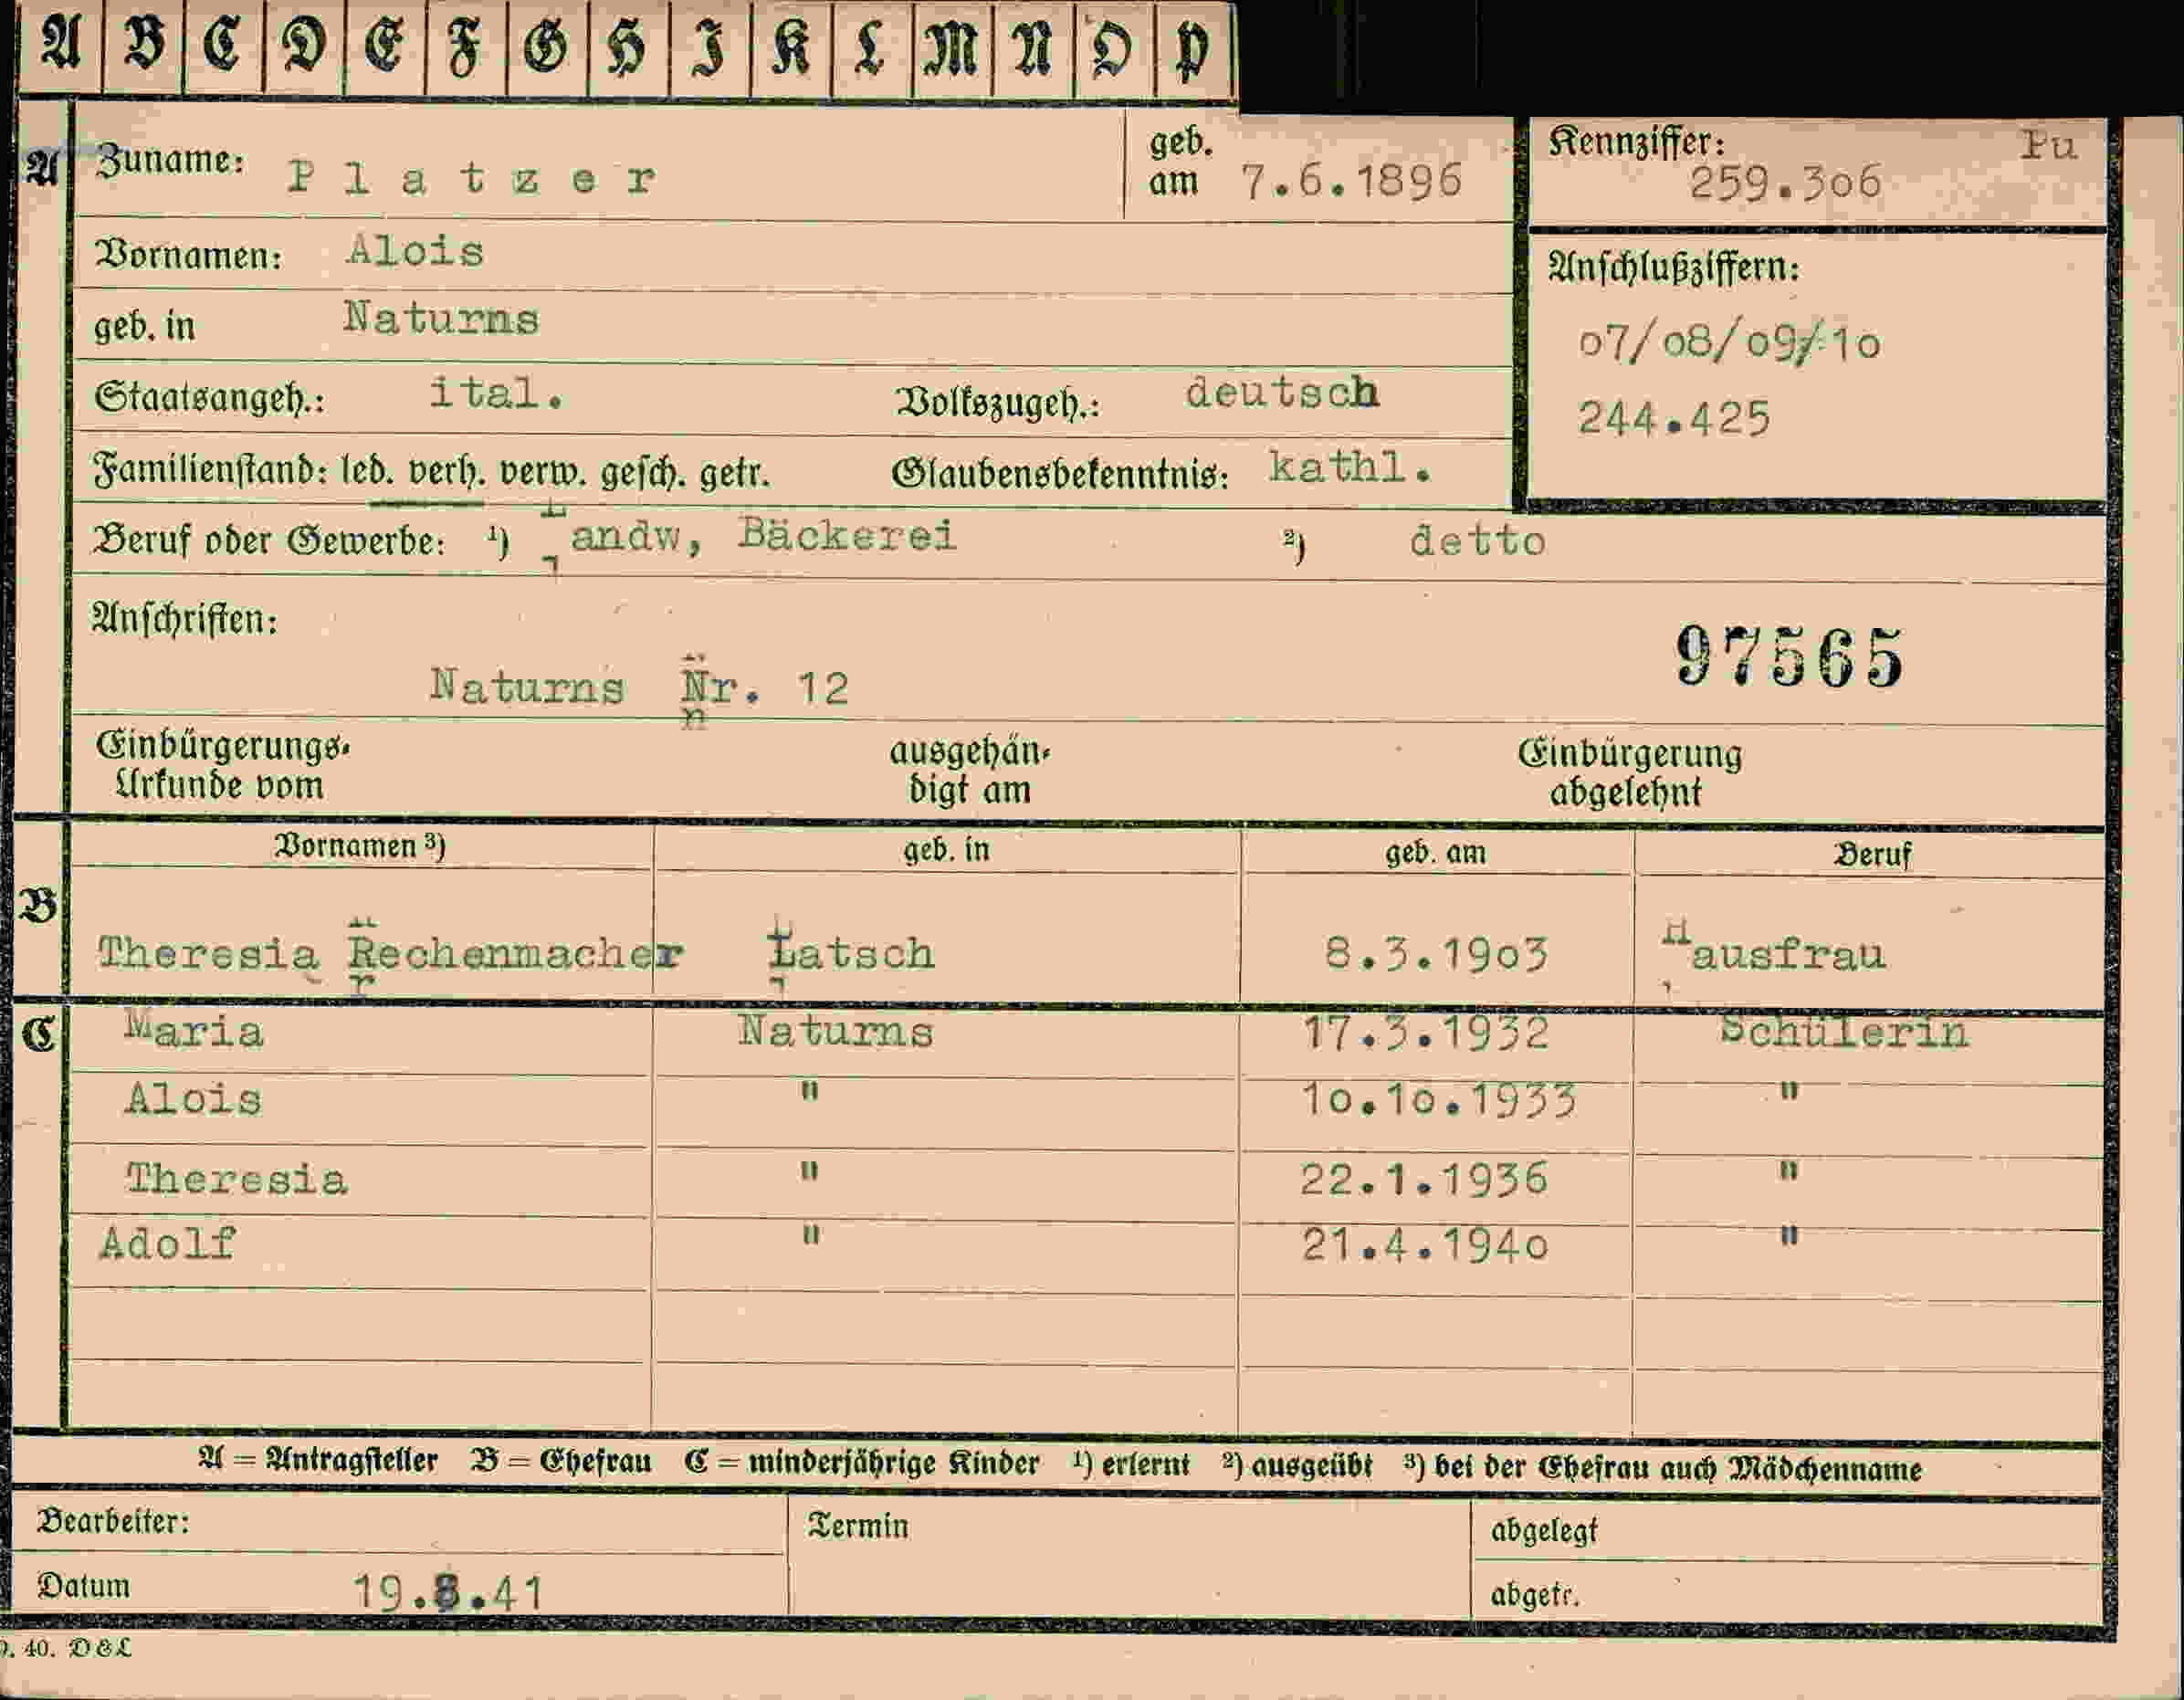 A B C D E F G H I K L M N O P
A Zuname: Platzer geb. am 7.6.1896 Kennziffer: 259.306 Pu
Vornamen: Alois
Anschlußziffern:
geb. in Naturns
07/08/09/10
Staatsangeh.: ital. Volkszugeh.: deutsch
244.425
Familienstand: led. verh. verw. gesch. getr. Glaubensbekenntnis: kathl.
Beruf oder Gewerbe: ¹) Landw, Bäckerei ²) detto
Anschriften:
97565
Naturns Nr. 12
Einbürgerungs- ausgehän- Einbürgerung
Urkunde vom digt am abgelehnt
Vornamen ³) geb. in geb. am Beruf
B
Theresia Rechenmacher Latsch 8.3.1903 Hausfrau
C Maria Naturns 17.3.1932 Schülerin
Alois " 10.10.1933 "
Theresia " 22.1.1936 "
Adolf " 21.4.1940 "
A = Antragsteller B = Ehefrau C = minderjährige Kinder ¹) erlernt ²) ausgeübt ³) bei der Ehefrau auch Mädchenname
Bearbeiter: Termin abgelegt
Datum 19.8.41 abgetr.
40. D&L